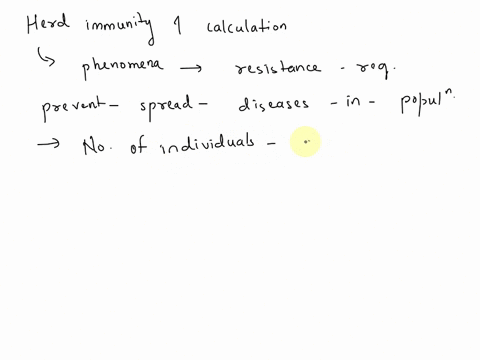 Herd immunity & calculation
↳ phenomena → resistance - req.
prevent - spread - diseases - in - populⁿ.
→ No. of individuals -